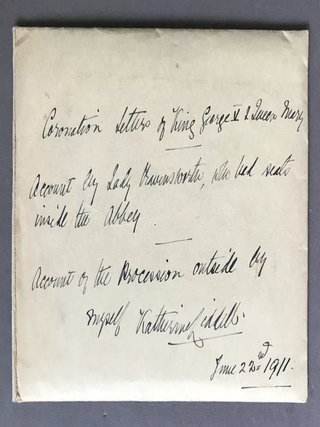 Coronation Letters of King George V & Queen Mary
Account by Lady Ravensworth, who had seats
inside the Abbey.
Account of the Procession outside by
myself Katherine Liddell.
June 22nd 1911.